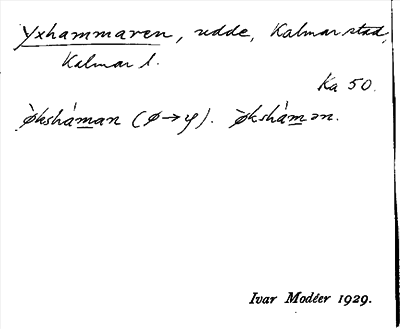 Yxhammaren, udde, Kalmar stad,
Kalmar l.
Ka 50.
ø̀ksháman (ø→y). ø̀kshámən.
Ivar Modéer 1929.